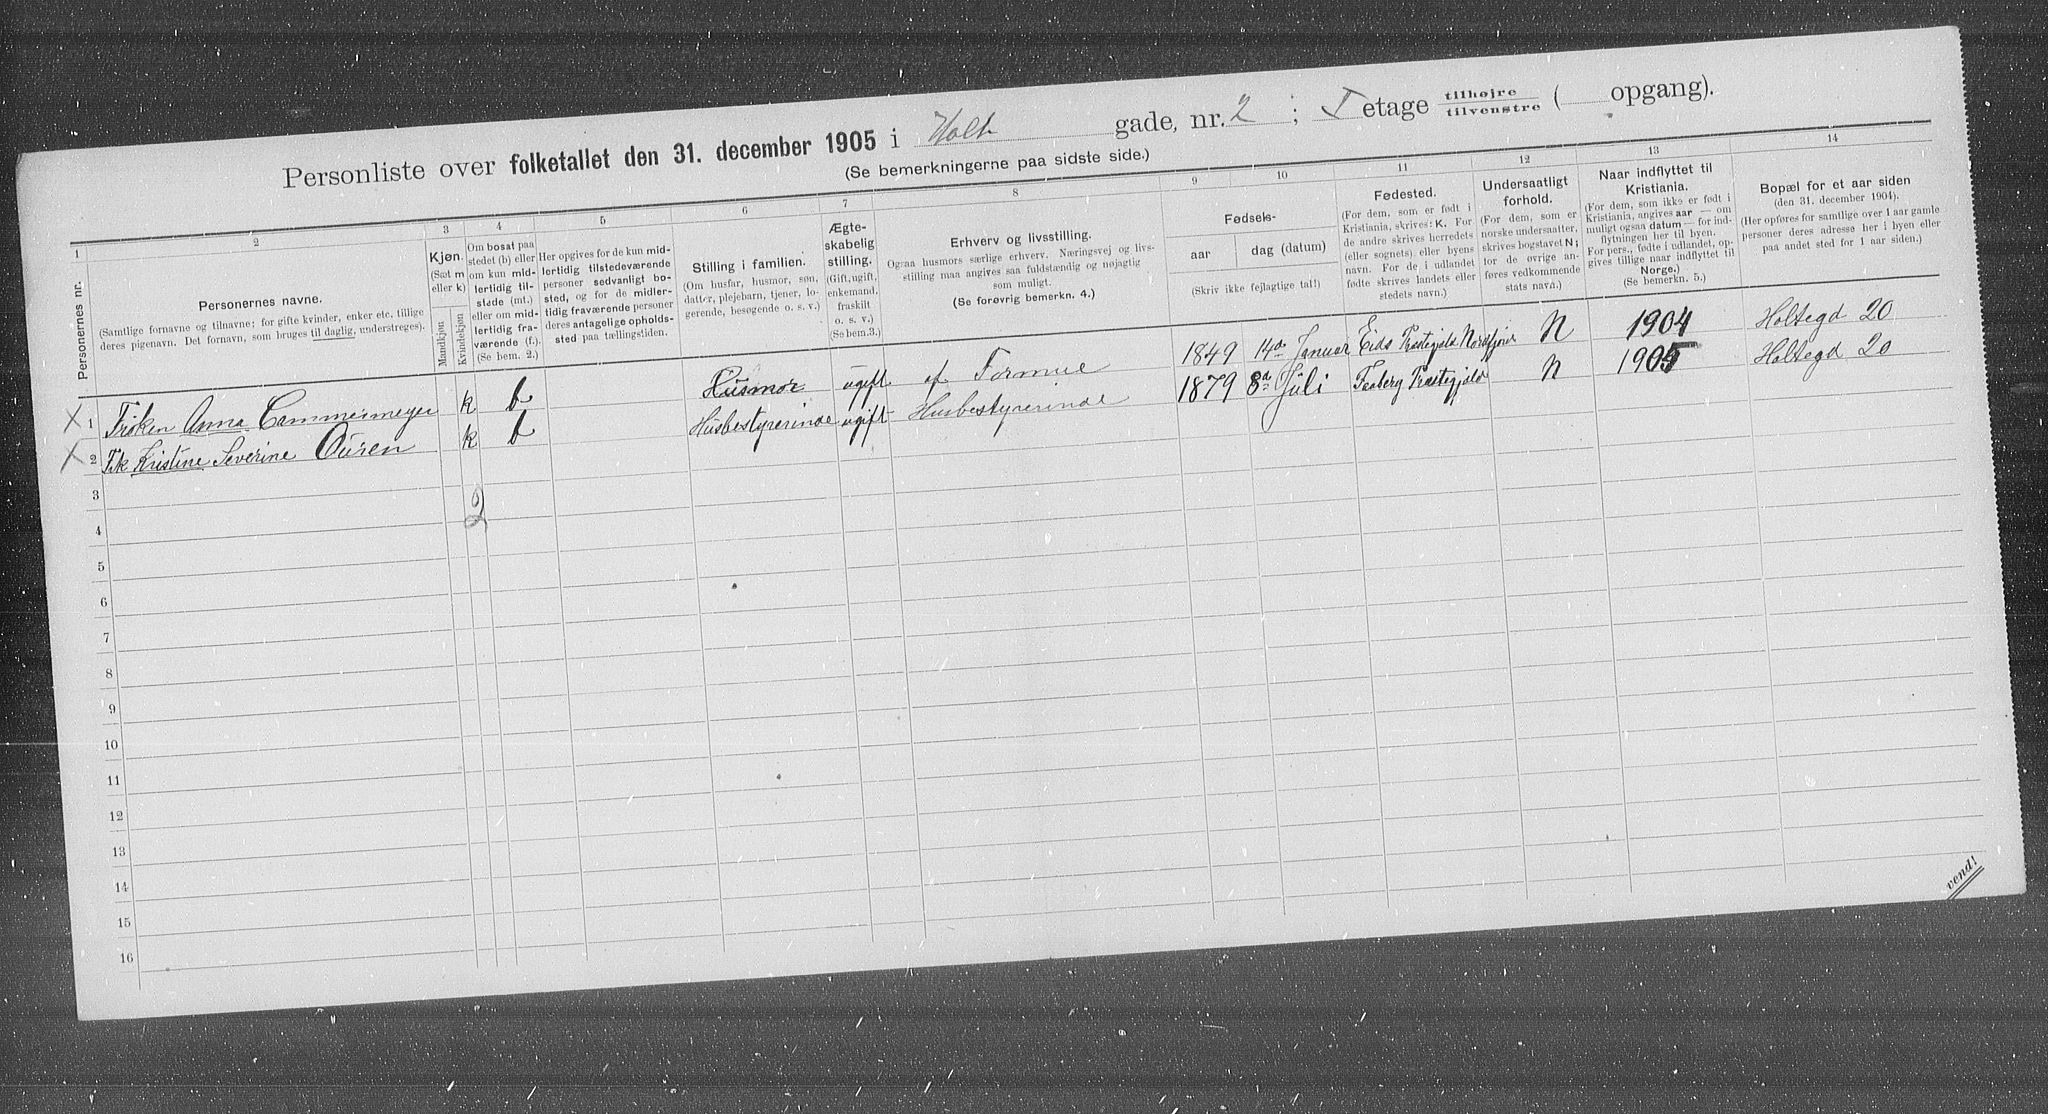 Personliste over folketallet den 31. december 1905 i Holt gade, nr. 2 ; I etage tilhøjre / tilvenstre ( opgang).
(Se bemerkningerne paa sidste side.)
1 2 3 4 5 6 7 8 9 10 11 12 13 14
Personernes nr.
Personernes navne.
(Samtlige fornavne og tilnavne; for gifte kvinder, enker etc. tillige
deres pigenavn. Det fornavn, som bruges til daglig, understreges).
Kjøn.
(Sæt m
eller k)
Mandkjøn
Kvindekjøn
Om bosat paa
stedet (b) eller
om kun mid-
lertidig til-
stede (mt.)
eller om mid-
lertidig fra-
værende (f.).
(Se bem. 2.)
Her opgives for de kun mid-
lertidig tilstedeværende
personer sedvanlig bo-
sted, og for de midler-
tidig fraværende personer
deres antagelige opholds-
sted paa tællingstiden.
Stilling i familien.
(Om husfar, husmor, søn,
datter, plejebarn, tjener, lo-
gerende, besøgende o. s. v.)
Ægte-
skabelig
stilling.
(Gift, ugift,
enkemand,
fraskilt
o. s. v.)
(Se bem.3.)
Erhverv og livsstilling.
Ogsaa husmors særlige erhverv. Næringsvej og livs-
stilling maa angives saa fuldstændig og nøjagtig
som muligt.
(Se forøvrig bemerkn. 4.)
Fødsels-
aar
dag (datum)
(Skriv ikke fejlagtige tal!)
Fødested.
(For dem, som er født i
Kristiania, skrives: K. For
de andre skrives herredets
(eller sognets) eller byens
navn. For de i udlandet
fødte skrives landets eller
stedets navn.)
Undersaatligt
forhold.
(For dem, som er
norske undersaatter,
skrives bogstavet N;
for de øvrige an-
føres vedkommende
stats navn.)
Naar indflyttet til
Kristiania.
(For dem, som ikke er født i
Kristiania, angives aar — om
muligt ogsaa datum — for ind-
flytningen her til byen.
For pers., fødte i udlandet, op-
gives tillige naar indflyttet til
Norge.)
(Se bemerkn. 5.)
Bopæl for et aar siden
(den 31. december 1904).
(Her opføres for samtlige over 1 aar gamle
personer deres adresse her i byen eller
paa andet sted for 1 aar siden.)
X 1 Frøken Anna Cammermeyer k b Husmor ugift af Formue 1849 14de Januar Eids Præstegjeld Nordfjord N 1904 Holtegd 20
X 2 Frk Kristine Severine Ouren k b Husbestyrerinde ugift Husbestyrerinde 1879 8de Juli Præstegjeld N 1905 Holtegd 20
3
2
4
5
6
7
8
9
10
11
12
13
14
15
16
vend!